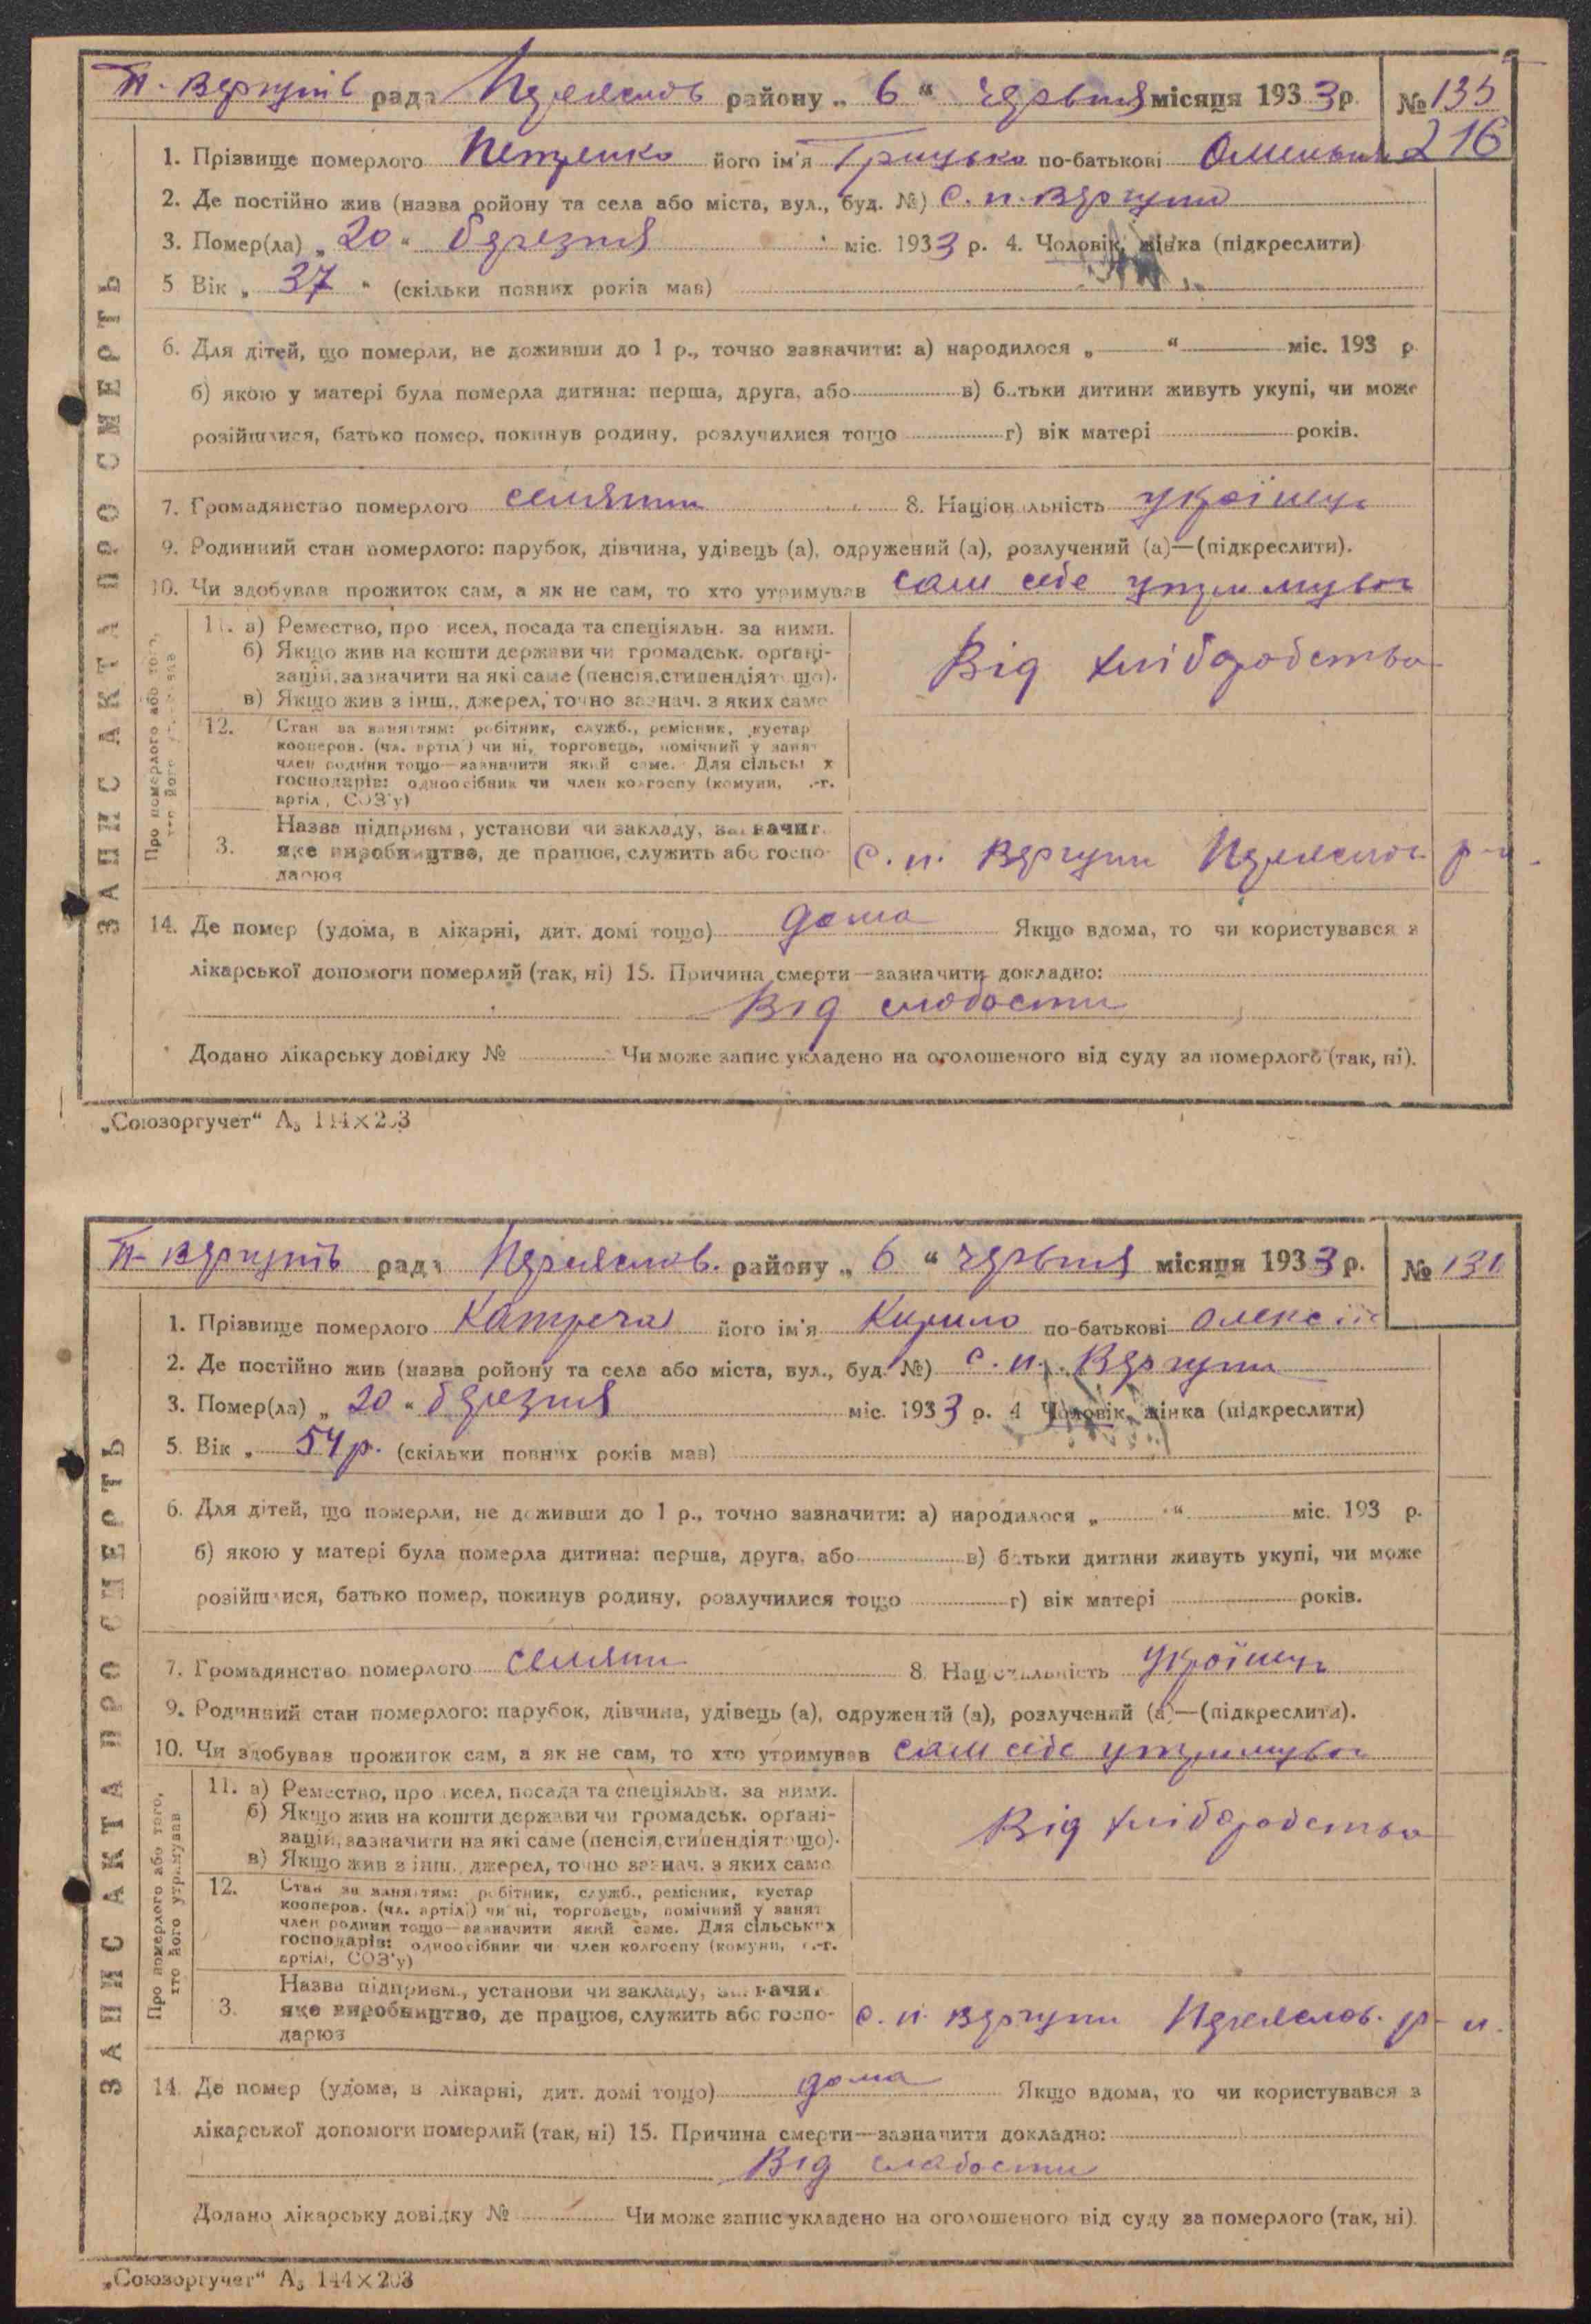 П-Вергунів рада Переяслов району „ 6 “ червня місяця 1933 р. № 135
216
1. Прізвище померлого Петренко його ім'я Грицько по-батькові
2. Де постійно жив (назва ройону та села або міста, вул., буд. №) с. п. Вергуни
3. Помер(ла) „ 20 “ березня міс. 1933 р. 4. Чоловік, жінка (підкреслити)
5 Вік „ 37 “ (скільки повних років мав)
6. Для дітей, що померли, не доживши до 1 р., точно зазначити: а) народилося „ “ міс. 193 р.
б) якою у матері була померла дитина: перша, друга, або в) батьки дитини живуть укупі, чи може
розійшлися, батько помер, покинув родину, розлучилися тощо г) вік матері років.
7. Громадянство померлого селянин 8. Національність українець
9. Родинний стан померлого: парубок, дівчина, удівець (а), одружений (а), розлучений (а)—(підкреслити).
10. Чи здобував прожиток сам, а як не сам, то хто утримував сам себе утримував
ЗАПИС АКТА ПРО СМЕРТЬ
Про померлого або того, хто його утримував
11. а) Ремество, про исел, посада та спеціяльн. за ними.
б) Якщо жив на кошти держави чи громадськ. орґані-
зацій, зазначити на які саме (пенсія, стипендія тощо).
в) Якщо жив з інш., джерел, точно зазнач. з яких саме
Від хліборобства
12. Стан за заняттям: робітник, служб., ремісник, кустар
кооперов. (чл. артілі) чи ні, торговець, помічний у занят
член родини тощо—зазначити який саме. Для сільськ х
господарів: одноосібник чи член колгоспу (комуни, с.-г.
артілі, СОЗ'у)
3. Назва підприєм., установи чи закладу, зазначит
яке виробництво, де працює, служить або госпо-
дарює
с. п. Вергуни Переяслов р-н.
14. Де помер (удома, в лікарні, дит. домі тощо) дома Якщо вдома, то чи користувався з
лікарської допомоги померлий (так, ні) 15. Причина смерти—зазначити докладно:
Від слабости
Додано лікарську довідку № Чи може запис укладено на оголошеного від суду за померлого (так, ні).
„Союзоргучет“ А₅ 144×203
П-Вергунів рада Переяслов. району „ 6 “ червня місяця 1933 р. № 131
1. Прізвище померлого Катреча його ім'я Кирило по-батькові Олексій
2. Де постійно жив (назва ройону та села або міста, вул., буд. №) с. п. Вергуни
3. Помер(ла) „ 20 “ березня міс. 1933 р. 4 Чоловік, жінка (підкреслити)
5. Вік „ 54 р. (скільки повних років мав)
6. Для дітей, що померли, не доживши до 1 р., точно зазначити: а) народилося „ “ міс. 193 р.
б) якою у матері була померла дитина: перша, друга, або в) батьки дитини живуть укупі, чи може
розійшлися, батько помер, покинув родину, розлучилися тощо г) вік матері років.
7. Громадянство померлого селянин 8. Національність українець
9. Родинний стан померлого: парубок, дівчина, удівець (а), одружений (а), розлучений (а)—(підкреслити).
10. Чи здобував прожиток сам, а як не сам, то хто утримував сам себе утримував
ЗАПИС АКТА ПРО СМЕРТЬ
Про померлого або того, хто його утримував
11. а) Ремество, про исел, посада та спеціяльн. за ними.
б) Якщо жив на кошти держави чи громадськ. орґані-
зацій, зазначити на які саме (пенсія, стипендія тощо).
в) Якщо жив з інш., джерел, точно зазнач. з яких саме
Від хліборобства
12. Стан за заняттям: робітник, служб., ремісник, кустар
кооперов. (чл. артілі) чи ні, торговець, помічний у занят
член родини тощо—зазначити який саме. Для сільських
господарів: одноосібник чи член колгоспу (комуни, с.-г.
артілі, СОЗ'у)
3. Назва підприєм., установи чи закладу, зазначит
яке виробництво, де працює, служить або госпо-
дарює
с. п. Вергуни Переяслов. р-н.
14. Де помер (удома, в лікарні, дит. домі тощо) дома Якщо вдома, то чи користувався з
лікарської допомоги померлий (так, ні) 15. Причина смерти—зазначити докладно:
Від слабости
Додано лікарську довідку № Чи може запис укладено на оголошеного від суду за померлого (так, ні).
„Союзоргучет“ А₅ 144×203